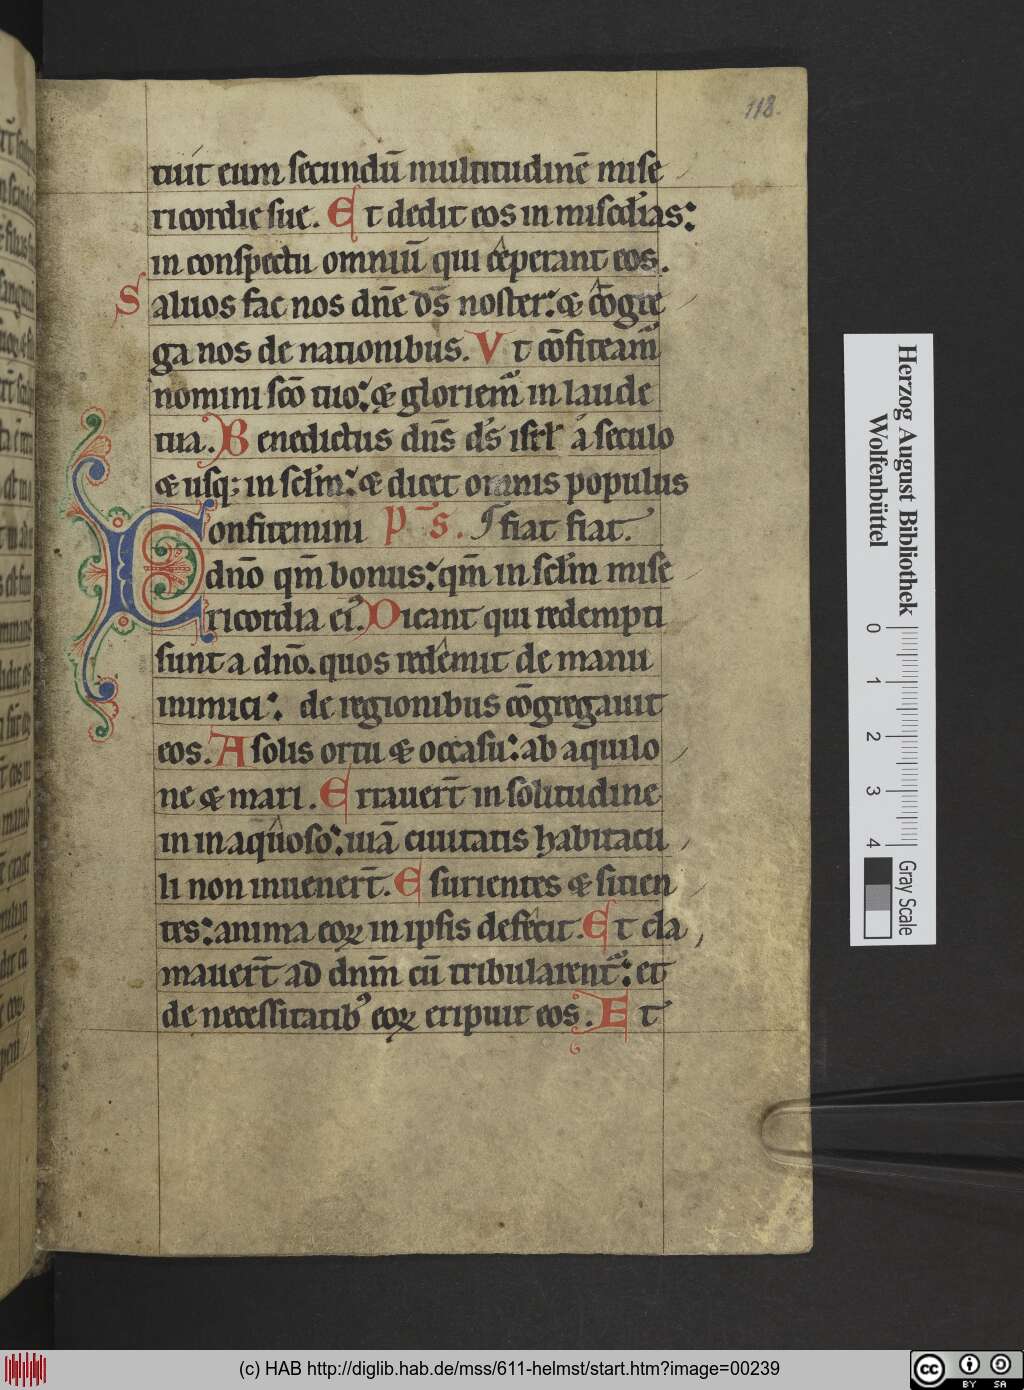 118.
tuit eum secundū multitudinē mise
ricordie sue. Et dedit eos in misc̄dias:
in conspectu omniū qui cēperant eos.
Saluos fac nos dn̄e ds̄ noster: & cōgre
ga nos de nationibus. Vt cōfiteam᷑
nomini sc̄o tuo: & gloriem᷑ in laude
tua. Benedictus dn̄s ds̄ isrl̄ a seculo
& usq; in sc̄lm: & dicet omnis populus
Confitemini p̄s. ¶ fiat fiat.
dn̄o qm̄ bonus: qm̄ in sc̄lm mise
ricordia ei᷒. Dicant qui redempti
sunt a dn̄o. quos redemit de manu
inimici: de regionibus cōgregauit
eos. A solis ortu & occasu: ab aquilo
ne & mari. Errauer̄t in solitudine
in inaquoso: uiā ciuitatis habitacu
li non inuener̄t. Esurientes & sitien
tes: anima eoꝝ in ipsis defecit. Et cla
mauer̄t ad dn̄m cū tribularent᷑: et
de necessitatib᷒ eoꝝ eripuit eos. Et
Herzog August Bibliothek
Wolfenbüttel
0 1 2 3 4
Gray Scale
(c) HAB http://diglib.hab.de/mss/611-helmst/start.htm?image=00239
cc BY SA